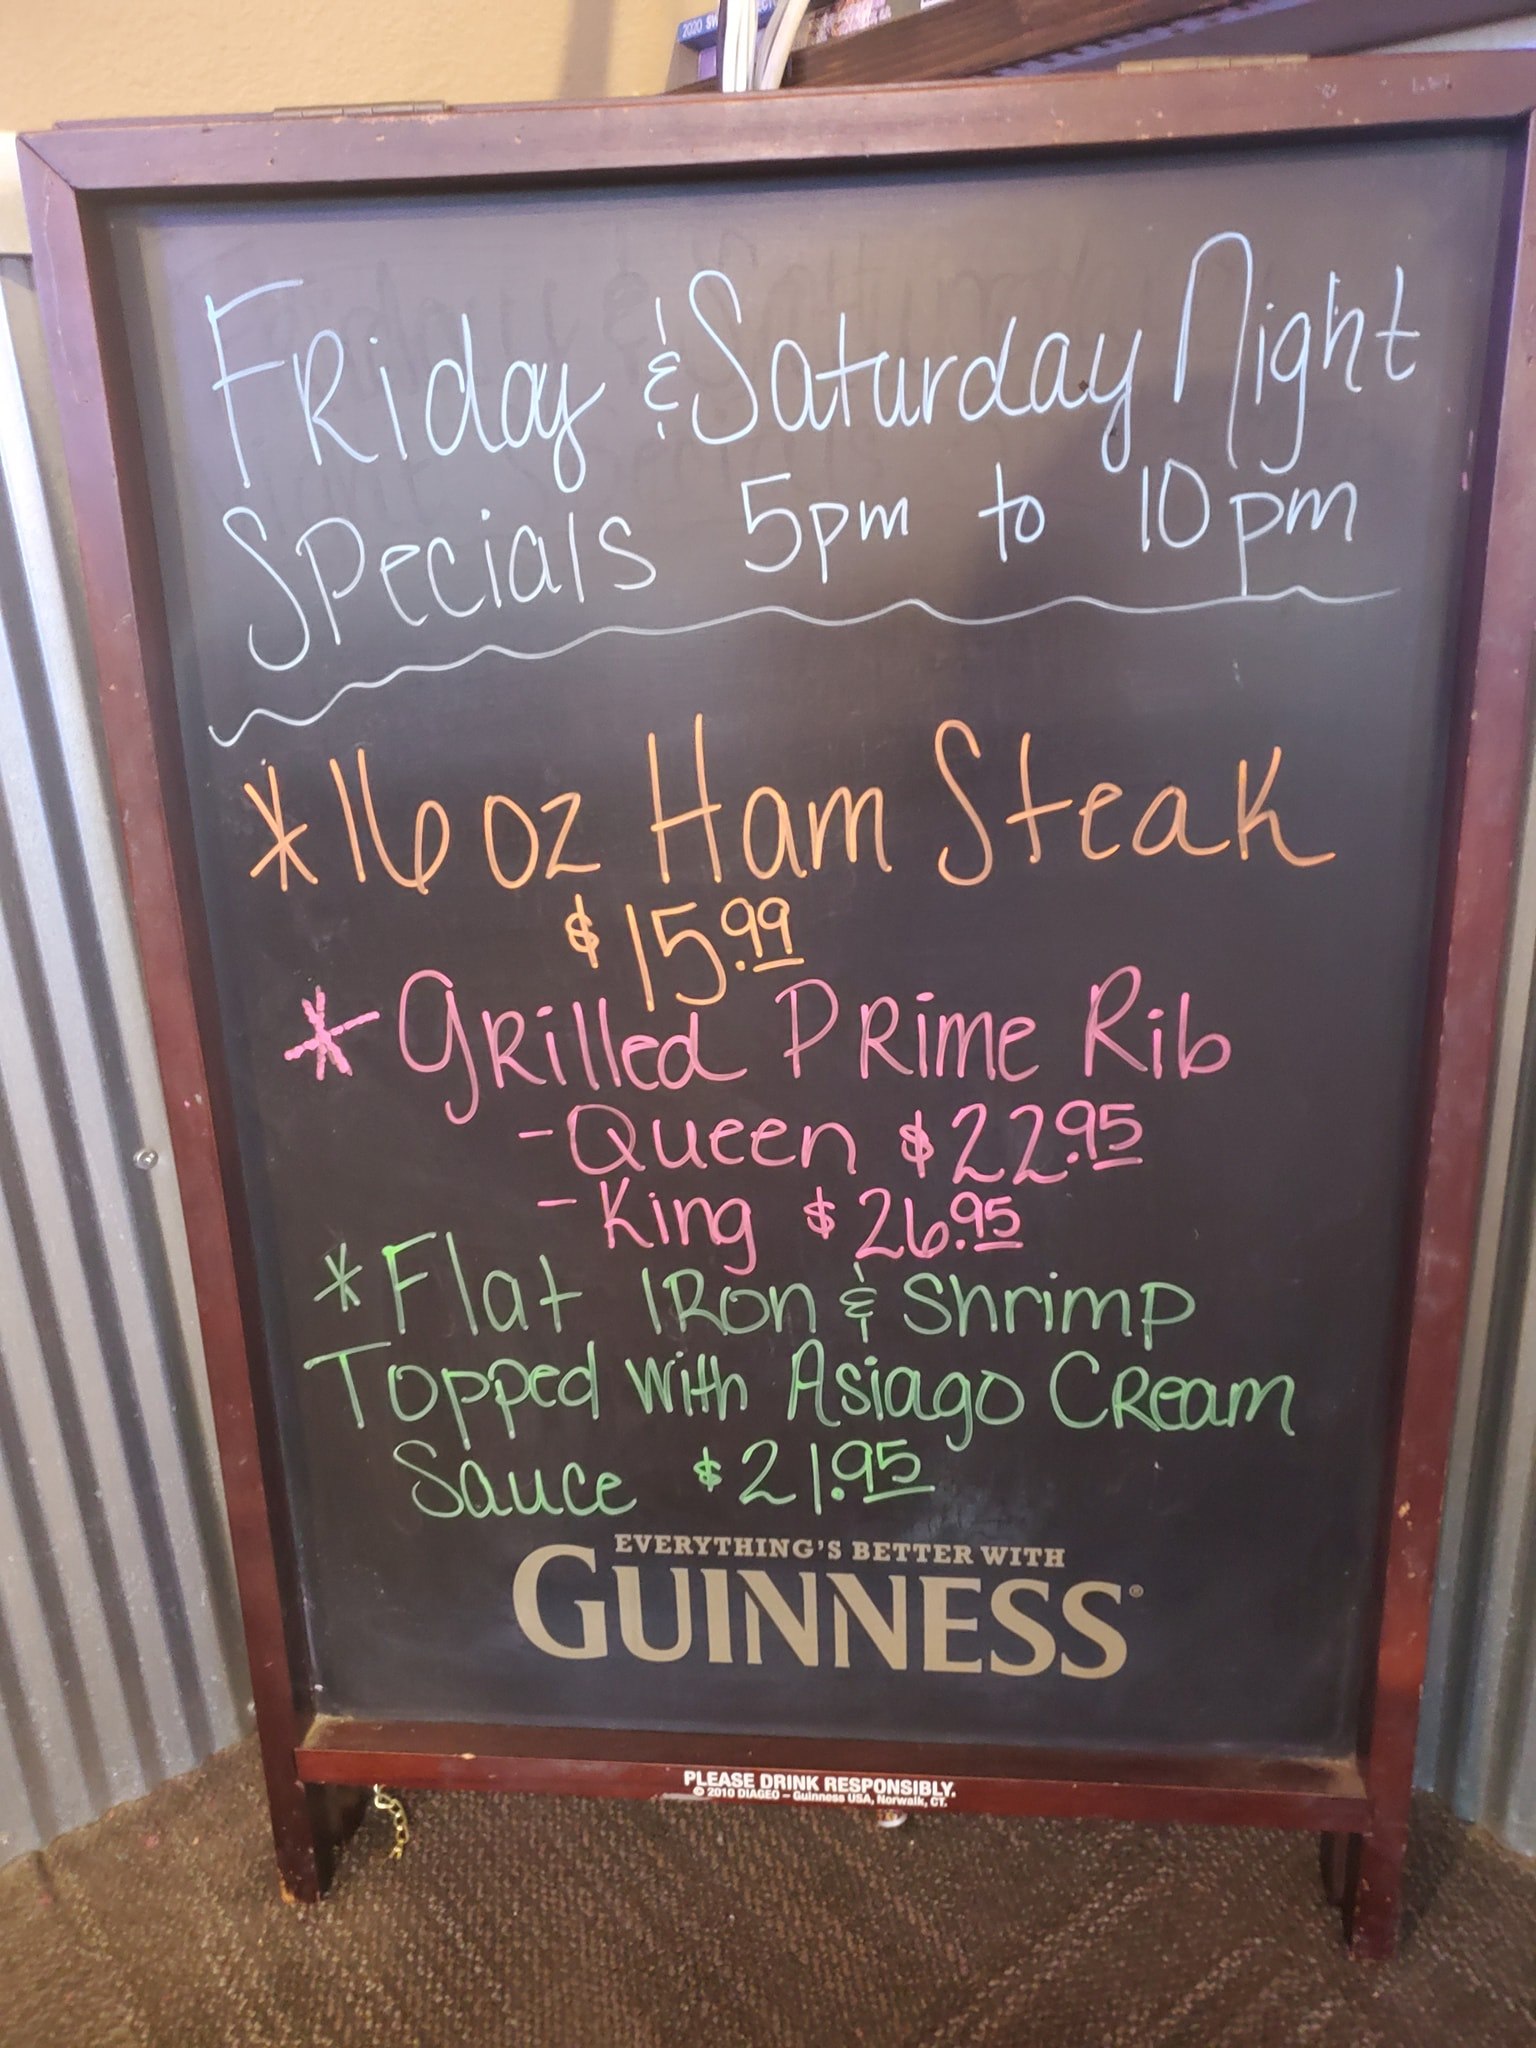 2020 SW
Friday & Saturday Night
Specials 5pm to 10pm
*16 oz Ham Steak
$15.99
*Grilled Prime Rib
-Queen $22.95
-King $26.95
*Flat Iron & Shrimp
Topped with Asiago Cream
Sauce $21.95
EVERYTHING'S BETTER WITH
GUINNESS®
PLEASE DRINK RESPONSIBLY.
© 2010 DIAGEO – Guinness USA, Norwalk, CT.